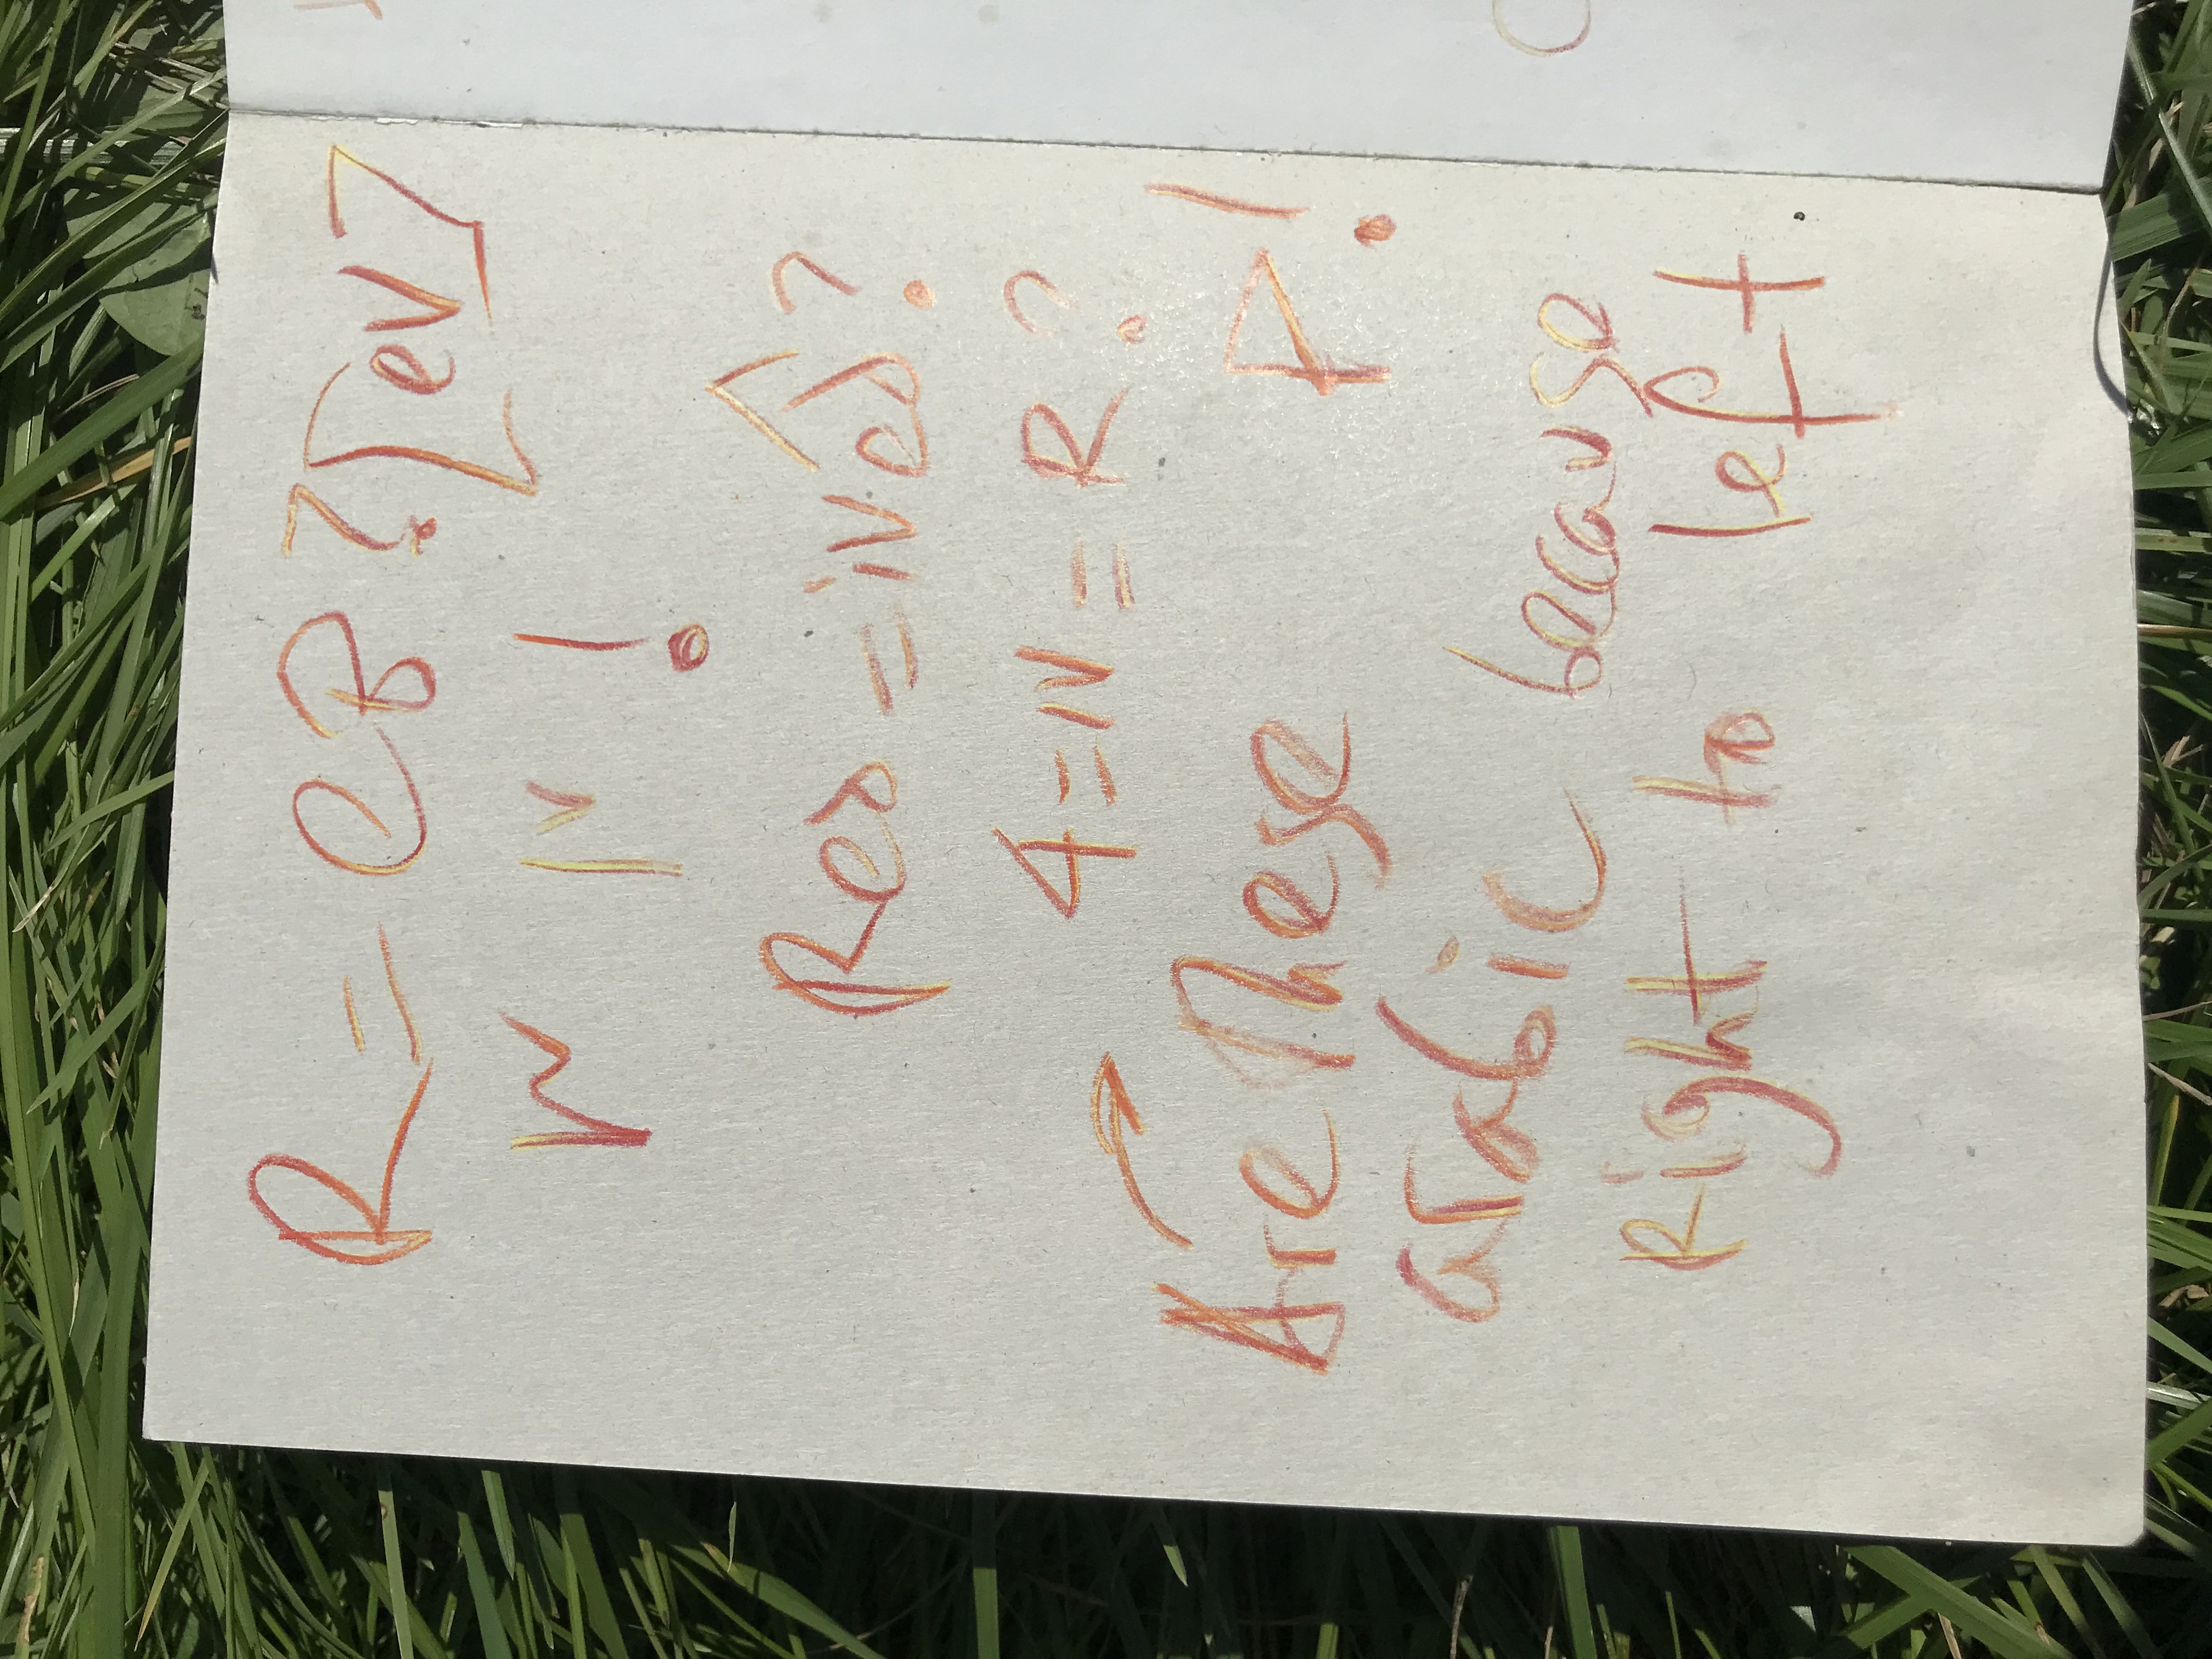 R = eB ? [ev]
IV IV !
Red = ived ?
4 = IV = R ?
Are These P!
arabic because
Right to left